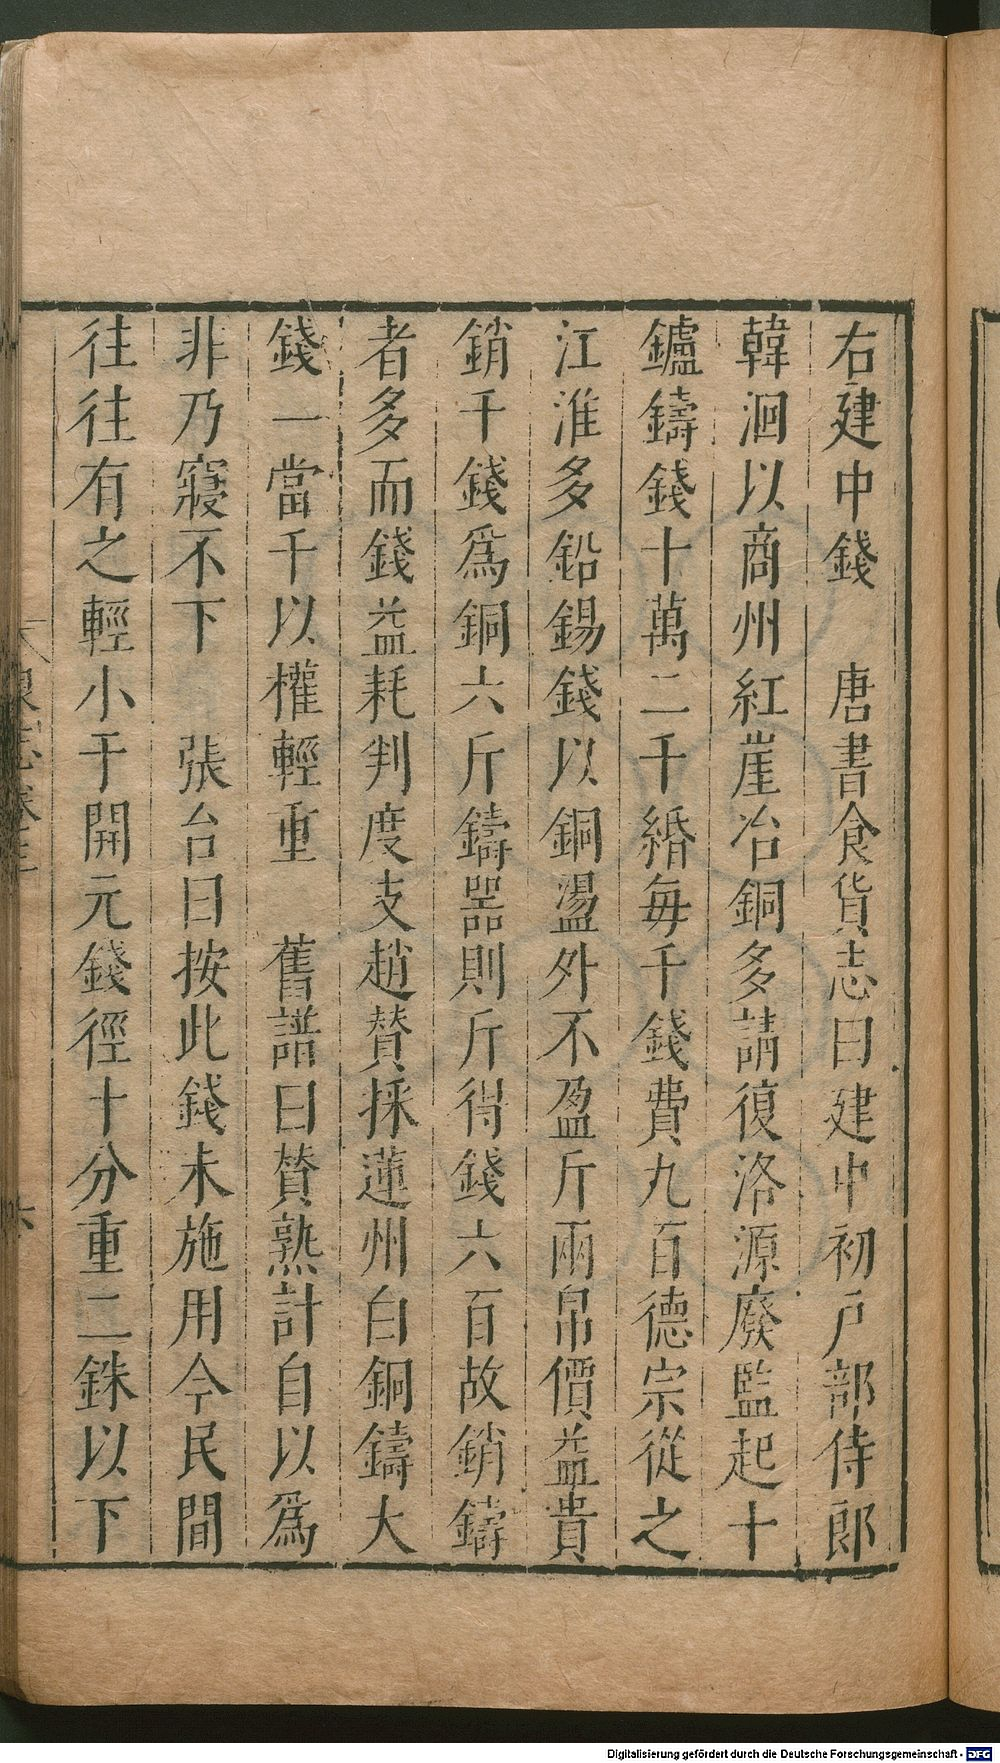 右建中錢　唐書食貨志曰建中初戸部侍郎
韓洄以商州紅崖冶銅多請復洛源廢監起十
鑪鑄錢十萬二千緡每千錢費九百德宗從之
江淮多鉛錫錢以銅盪外不盈斤兩帛價益貴
銷千錢爲銅六斤鑄器則斤得錢六百故銷鑄
者多而錢益耗判度支趙贊採蓮州白銅鑄大
錢一當千以權輕重　舊譜曰贊熟計自以爲
非乃寢不下　張台曰按此錢未施用今民間
往往有之輕小于開元錢徑十分重二銖以下
泉志卷三
Digitalisierung gefördert durch die Deutsche Forschungsgemeinschaft - DFG